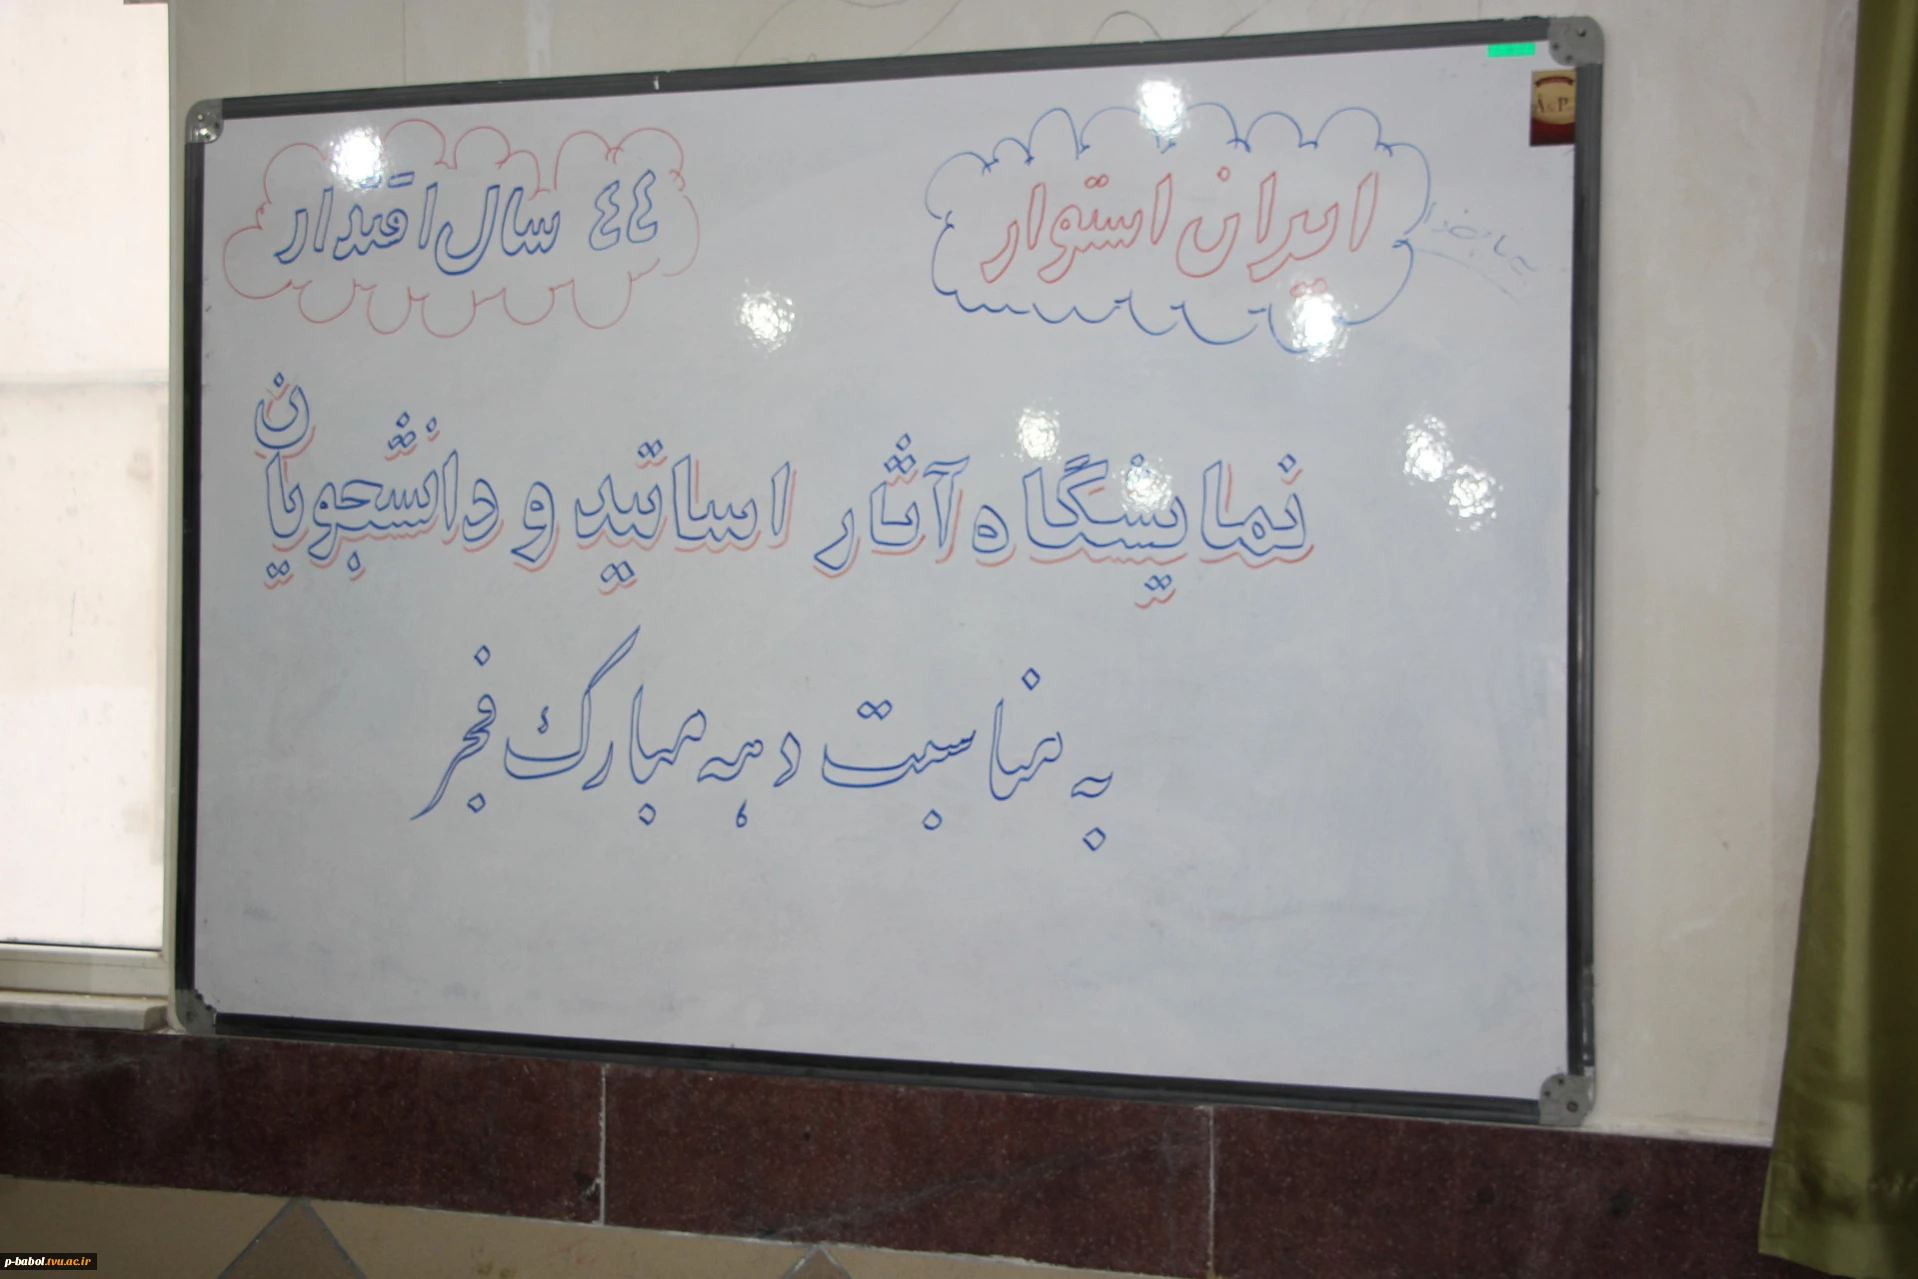 ایران استوار
٤٤ سال اقتدار
نمایشگاه آثار اساتید و دانشجویان
به مناسبت دهه مبارک فجر
p-babol.tvu.ac.ir